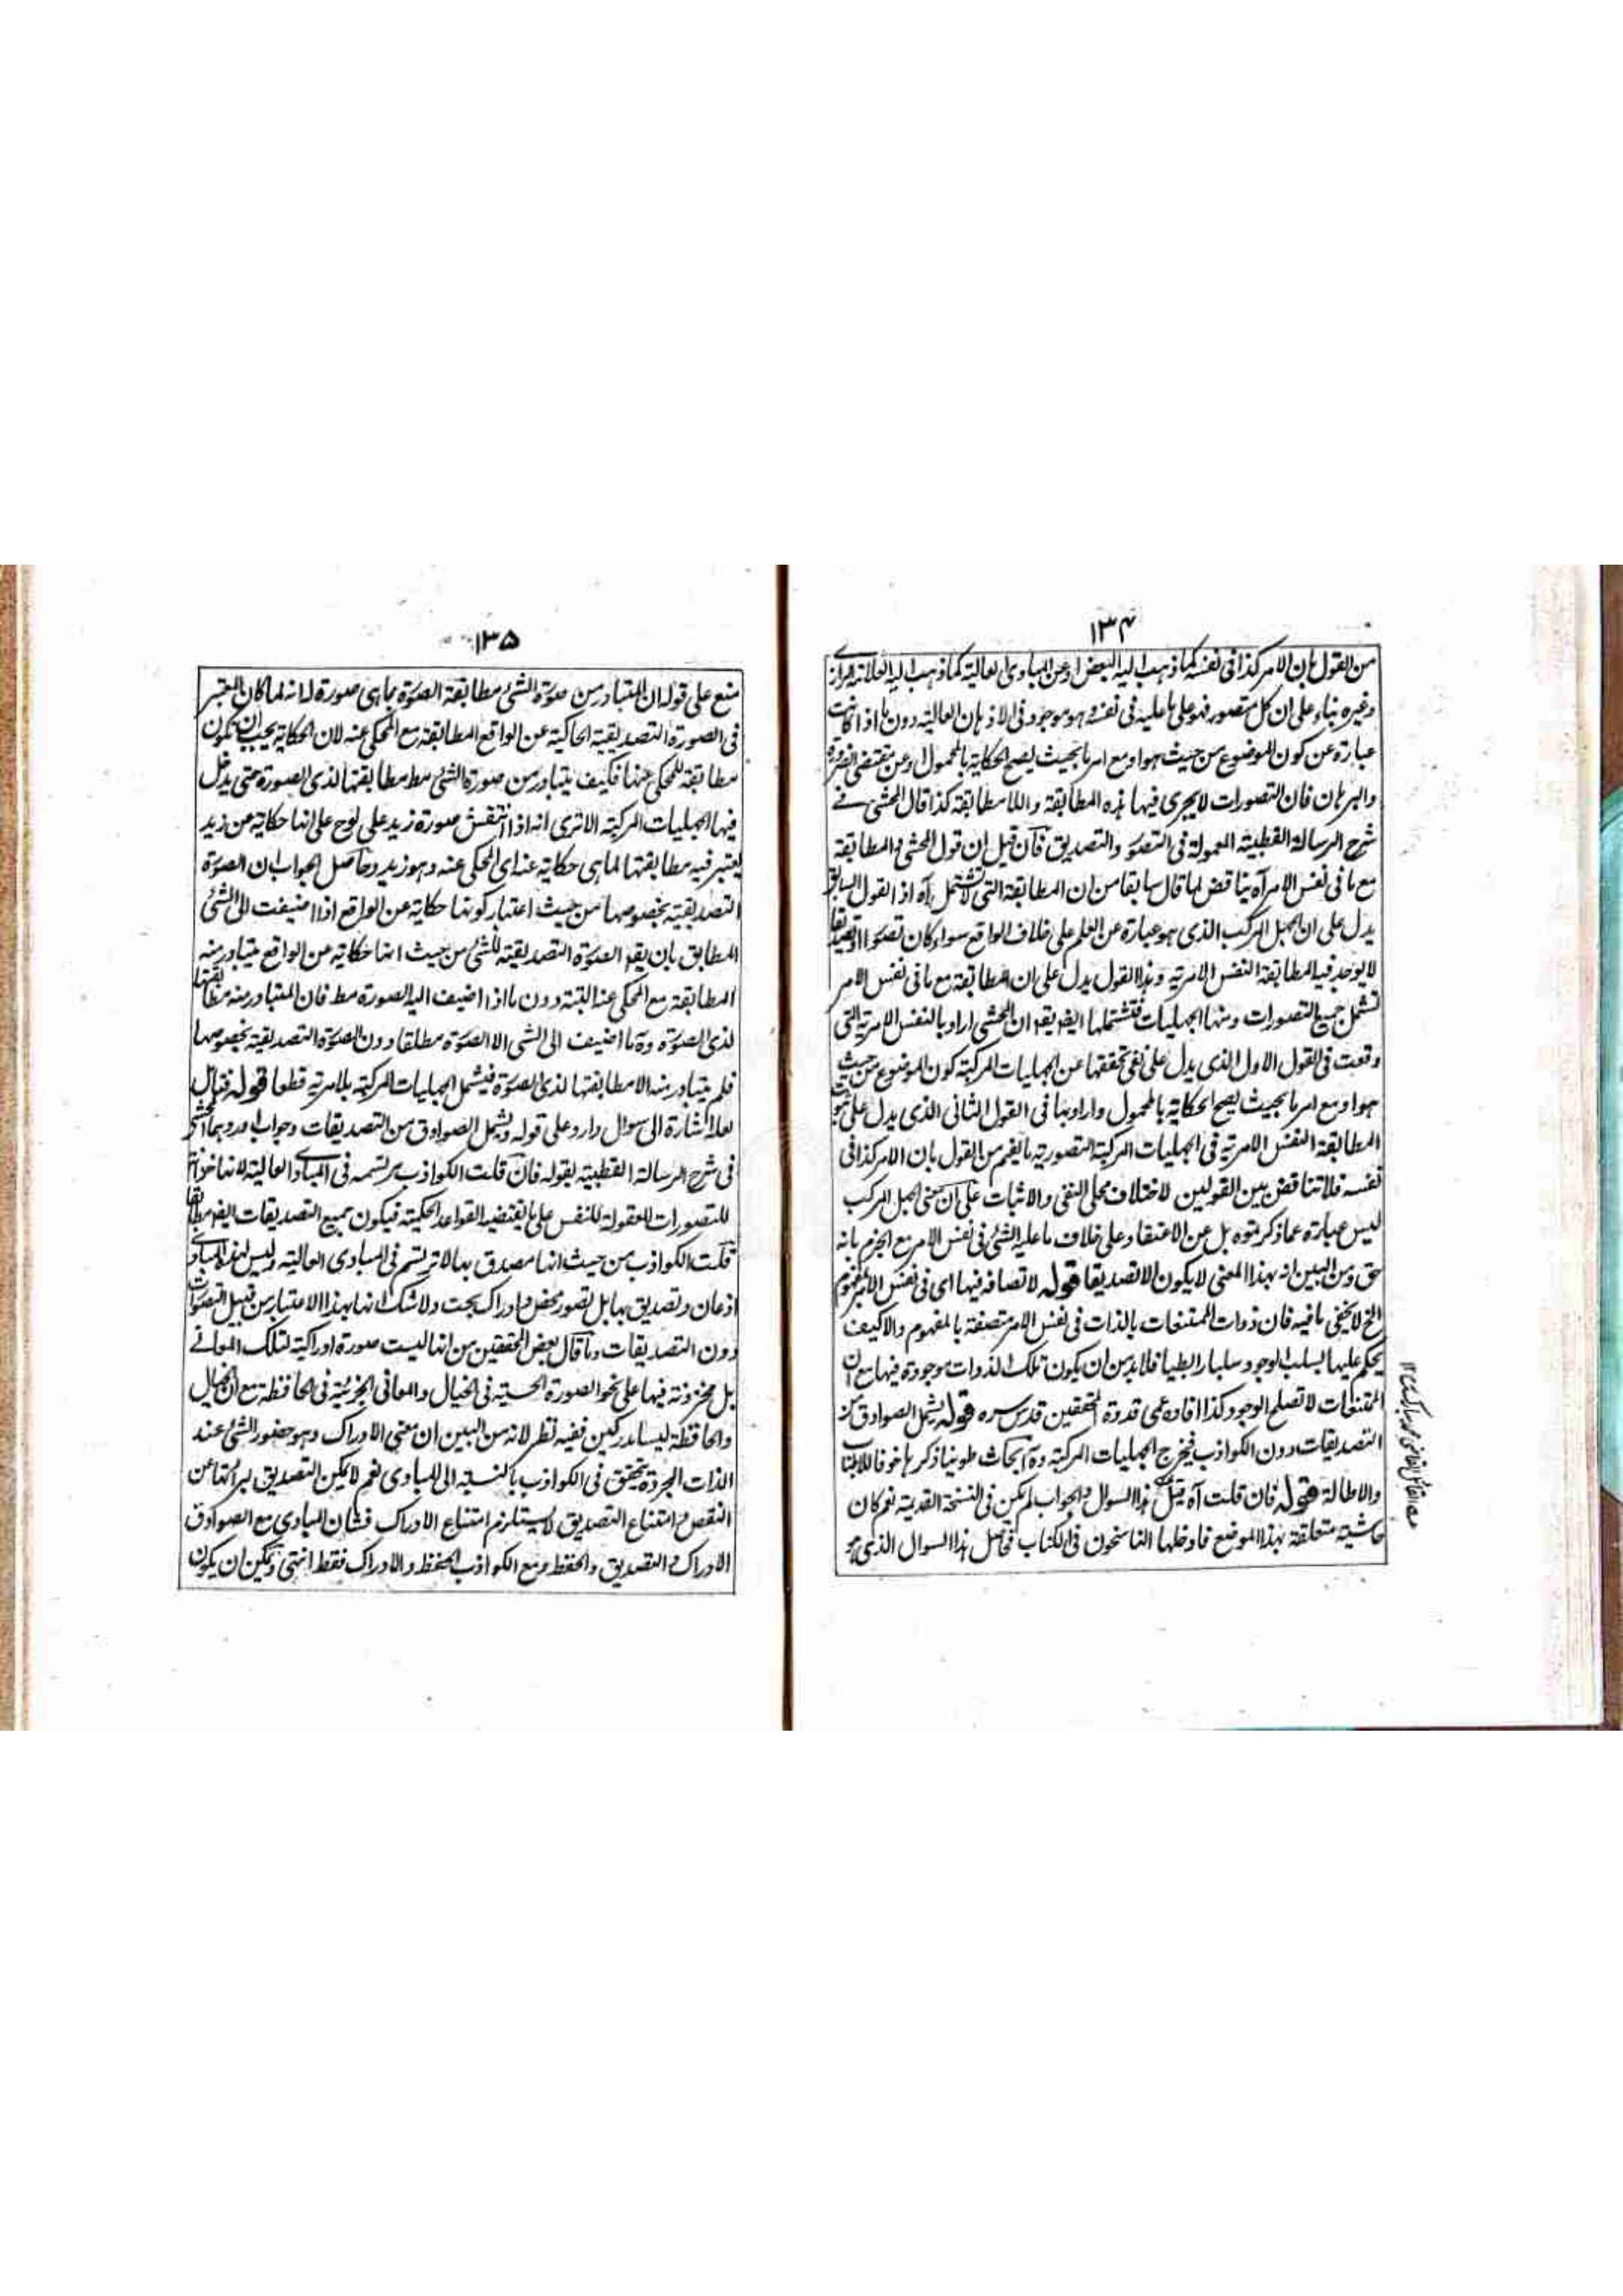 ١٣٤
من القول بان الامر كذا فى نفسه كما ذهب اليه البعض او عن المبادى العالية كما ذهب اليه العلامة
وغيره بناء على ان كل متصور فهو على ما عليه فى نفسه وهو موجود فى الاذهان العالية دون ما اذا كانت
عبارة عن كون الموضوع من حيث هو او مع امر ما بحيث يصح الحكاية بالمحمول وعن مقتضى الضرورة
والبرهان فان التصورات لا يجرى فيها هذه المطابقة واللامطابقة كذا قال المحشى فے
شرح الرسالة القطبية المعمولة فى التصور والتصديق فان قيل ان قول المحشى والمطابقة
مع ما فى نفس الامر آه يناقض لما قال سابقا من ان المطابقة التى لا تشتمل آه اذ القول السابق
يدل على ان الجهل المركب الذى هو عبارة عن العلم على خلاف الواقع سواء كان تصورا او تصديقا
لا يوجد فيه المطابقة النفس الامرية وهذا القول يدل على ان المطابقة مع ما فى نفس الامر
تشمل جميع التصورات ومنها الجهليات فتشتملها ايضا يقال ان المحشى اراد بالنفس الامرية التى
وقعت فى القول الاول الذى يدل على نفى تحققها عن الجهليات المركبة كون الموضوع من حيث
هو او مع امر ما بحيث يصح الحكاية بالمحمول واراد بها فى القول الثانى الذى يدل على ثبوت
المطابقة النفس الامرية فى الجهليات المركبة التصورية ما يفهم من القول بان الامر كذا فى
نفسه فلا تناقض بين القولين لاختلاف محلى النفى والاثبات على ان معنى الجهل المركب
ليس عبارة عما ذكرتموه بل عن الاعتقاد على خلاف ما عليه الشئ فى نفس الامر مع الجزم بانه
حق ومن البين انه بهذا المعنى لا يكون الا تصديقا قوله لاتصافه فيها اى فى نفس الامر بمفهوم
الخ لا يخفى ما فيه فان ذوات الممتنعات بالذات فى نفس الامر متصفة بالمفهوم والا كيف
يحكم عليها بسلب الوجود سلبا رابطيا فلا بد من ان يكون تلك الذوات موجودة فيها مع ان
الممتنعات لا تصلح الوجود كذا افاده عمى قدوة المحققين قدس سره قوله يشمل الصوادق من
التصديقات دون الكواذب فيخرج الجهليات المركبة وههنا ابحاث طوينا ذكرها خوفا للاطناب
والاطالة قوله فان قلت آه قيل هذا السوال والجواب لم يكن فى النسخة القديمة نعم كان
حاشية متعلقة بهذا الموضع فادخلها الناسخون فى الكتاب فحاصل هذا السوال الذى هو
١٣٥
منع على قوله ان المتبادر من صورة الشئ مطابقة الصورة بما هى صورة له انه لما كان المعتبر
فى الصورة التصديقية الحاكية عن الواقع المطابقة مع المحكى عنه لان الحكاية يجب ان تكون
مطابقة للمحكى عنها فكيف يتبادر من صورة الشئ مط مطابقتها لذى الصورة حتى يدخل
فيها الجهليات المركبة الا ترى انه اذا انتقش صورة زيد على لوح على انها حكاية عن زيد
يعتبر فيه مطابقتها لما هى حكاية عنه اى المحكى عنه وهو زيد وحاصل الجواب ان الصورة
التصديقية بخصوصها من حيث اعتبار كونها حكاية عن الواقع اذا اضيفت الى الشئ
المطابق بان يقو الصورة التصديقية للشئ من حيث انها حكاية عن الواقع يتبادر منه
المطابقة مع المحكى عنه البتة دون ما اذا اضيف اليه الصورة مط فان المتبادر منه مطابقتها
لذى الصورة وههنا ما اضيف الى الشى الا الصورة مطلقا دون الصورة التصديقية بخصوصها
فلم يتبادر منه الا مطابقتها لذى الصورة فيشمل الجهليات المركبة بلا مرية قطعا قوله فتامل
لعله اشارة الى سوال وارد على قوله ويشمل الصوادق من التصديقات وجوابه اوردهما المحشى
فى شرح الرسالة القطبية بقوله فان قلت الكواذب مرتسمة فى المبادى العالية لانها خزانة
للتصورات المعقولة للنفس على ما يقتضيه القواعد الحكمية فيكون جميع التصديقات ايضا مطابقا
قلت الكواذب من حيث انها مصدق بها لا ترتسم فى المبادى العالية وليس لهذه المبادى
اذعان وتصديق بها بل تصور محض وادراك بحت ولا شك انها بهذا الاعتبار من قبيل التصورات
دون التصديقات وما قال بعض المحققين من انها ليست صورة ادراكية لتلك المعانے
بل مخزونة فيها على نحو الصورة الحسية فى الخيال والمعانى الجزئية فى الحافظة مع ان الخيال
والحافظة ليسا مدركين ففيه نظر لانه من البين ان معنى الادراك وهو حضور الشئ عند
الذات المجردة يتحقق فى الكواذب بالنسبة الى المبادى نعم لا يمكن التصديق لبرائتها عن
النقص وامتناع التصديق لا يستلزم امتناع الادراك فشان المبادى مع الصوادق
الادراك والتصديق والحفظ ومع الكواذب الحفظ والادراك فقط انتهى ويمكن ان يكون